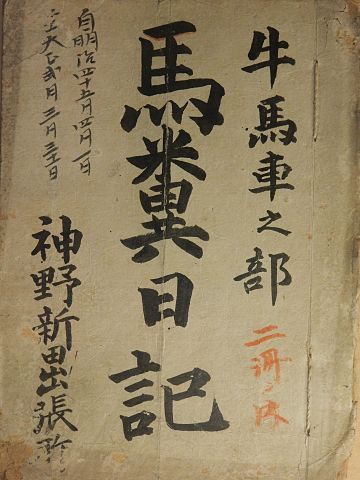 牛馬車之部
二冊ノ内
馬糞日記
自明治四十五年四月一日
至大正貳年三月三十一日
神野新田出張所